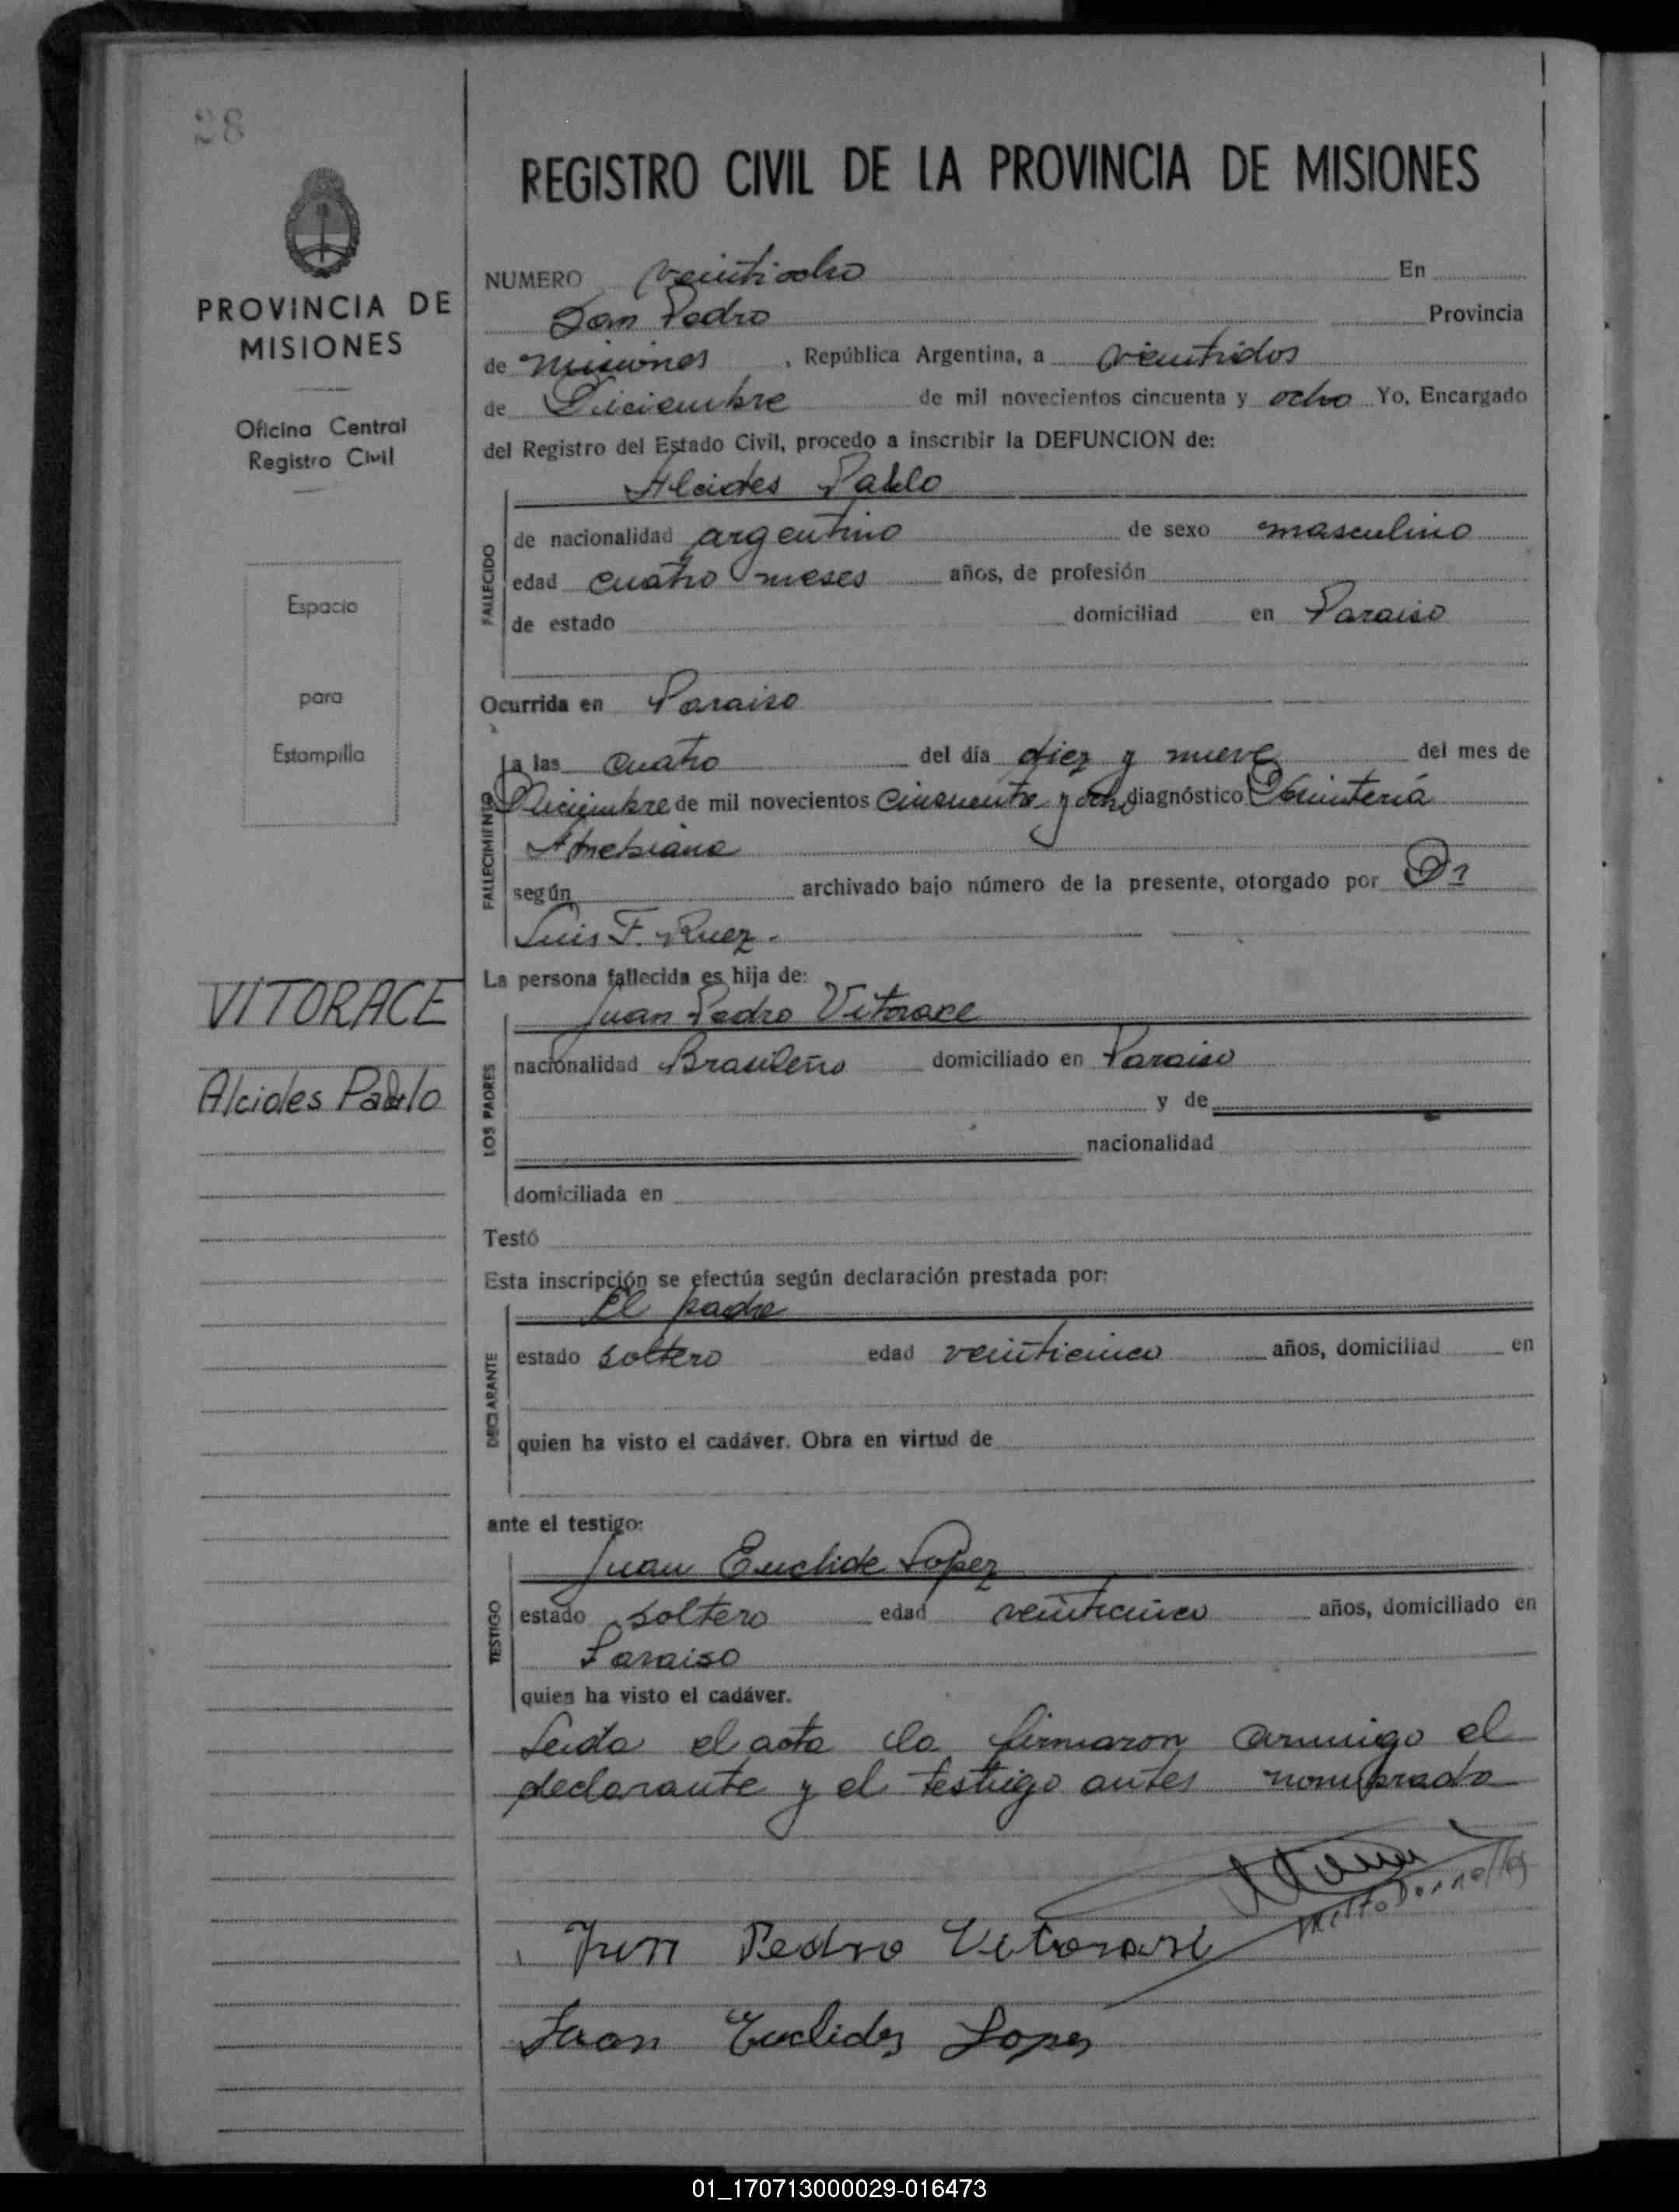 28
PROVINCIA DE
MISIONES
Oficina Central
Registro Civil
Espacio
para
Estampilla
VITORACE
Alcides Pablo
REGISTRO CIVIL DE LA PROVINCIA DE MISIONES
NUMERO veintiocho En
San Pedro Provincia
de Misiones , República Argentina, a veintidos
de Diciembre de mil novecientos cincuenta y ocho Yo, Encargado
del Registro del Estado Civil, procedo a inscribir la DEFUNCION de:
Alcides Pablo
FALLECIDO
de nacionalidad argentino de sexo masculino
edad cuatro meses años, de profesión
de estado domiciliad en Paraiso
Ocurrida en Paraiso
FALLECIMIENTO
a las cuatro del día diez y nueve del mes de
Diciembre de mil novecientos cincuenta y ocho diagnóstico Desinteria
Amebiana
según archivado bajo número de la presente, otorgado por Dr
Luis F. Ruez.
La persona fallecida es hija de:
Juan Pedro Vitorace
LOS PADRES
nacionalidad Brasileño domiciliado en Paraiso
y de
nacionalidad
domiciliada en
Testó
Esta inscripción se efectúa según declaración prestada por:
El padre
DECLARANTE
estado soltero edad veinticinco años, domiciliad en
quien ha visto el cadáver. Obra en virtud de
ante el testigo:
Juan Euclide Lopez
TESTIGO
estado soltero edad veinticinco años, domiciliado en
Paraiso
quien ha visto el cadáver.
Leida el acta la firmaron conmigo el
declarante y el testigo antes nombrado
Juan Pedro Vitorace
Juan Euclides Lopes
01_170713000029-016473